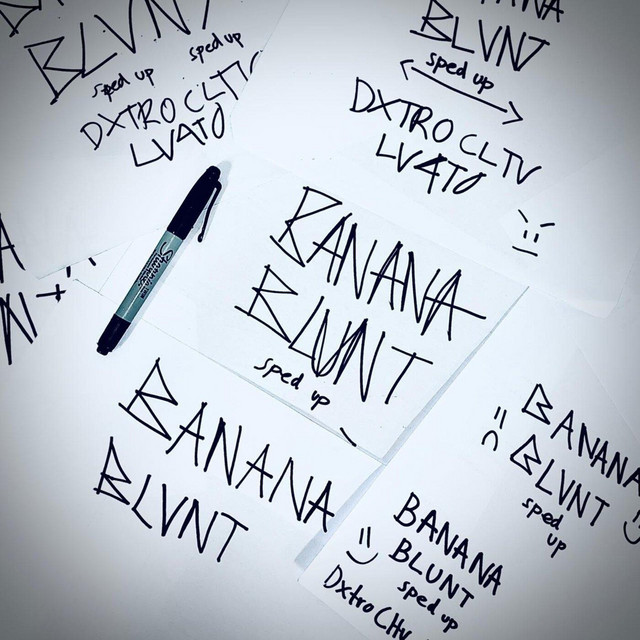 BLVNT
sped up
sped up
DXTRO CLTV
LVATO
BLVNT
sped up
DXTRO CLTV
LV4TO
Sharpie
BANANA
BLUNT
sped up
BANANA
BLVNT
BANANA
BLVNT
sped
up
BANANA
BLUNT
sped up
Dxtro Cltv